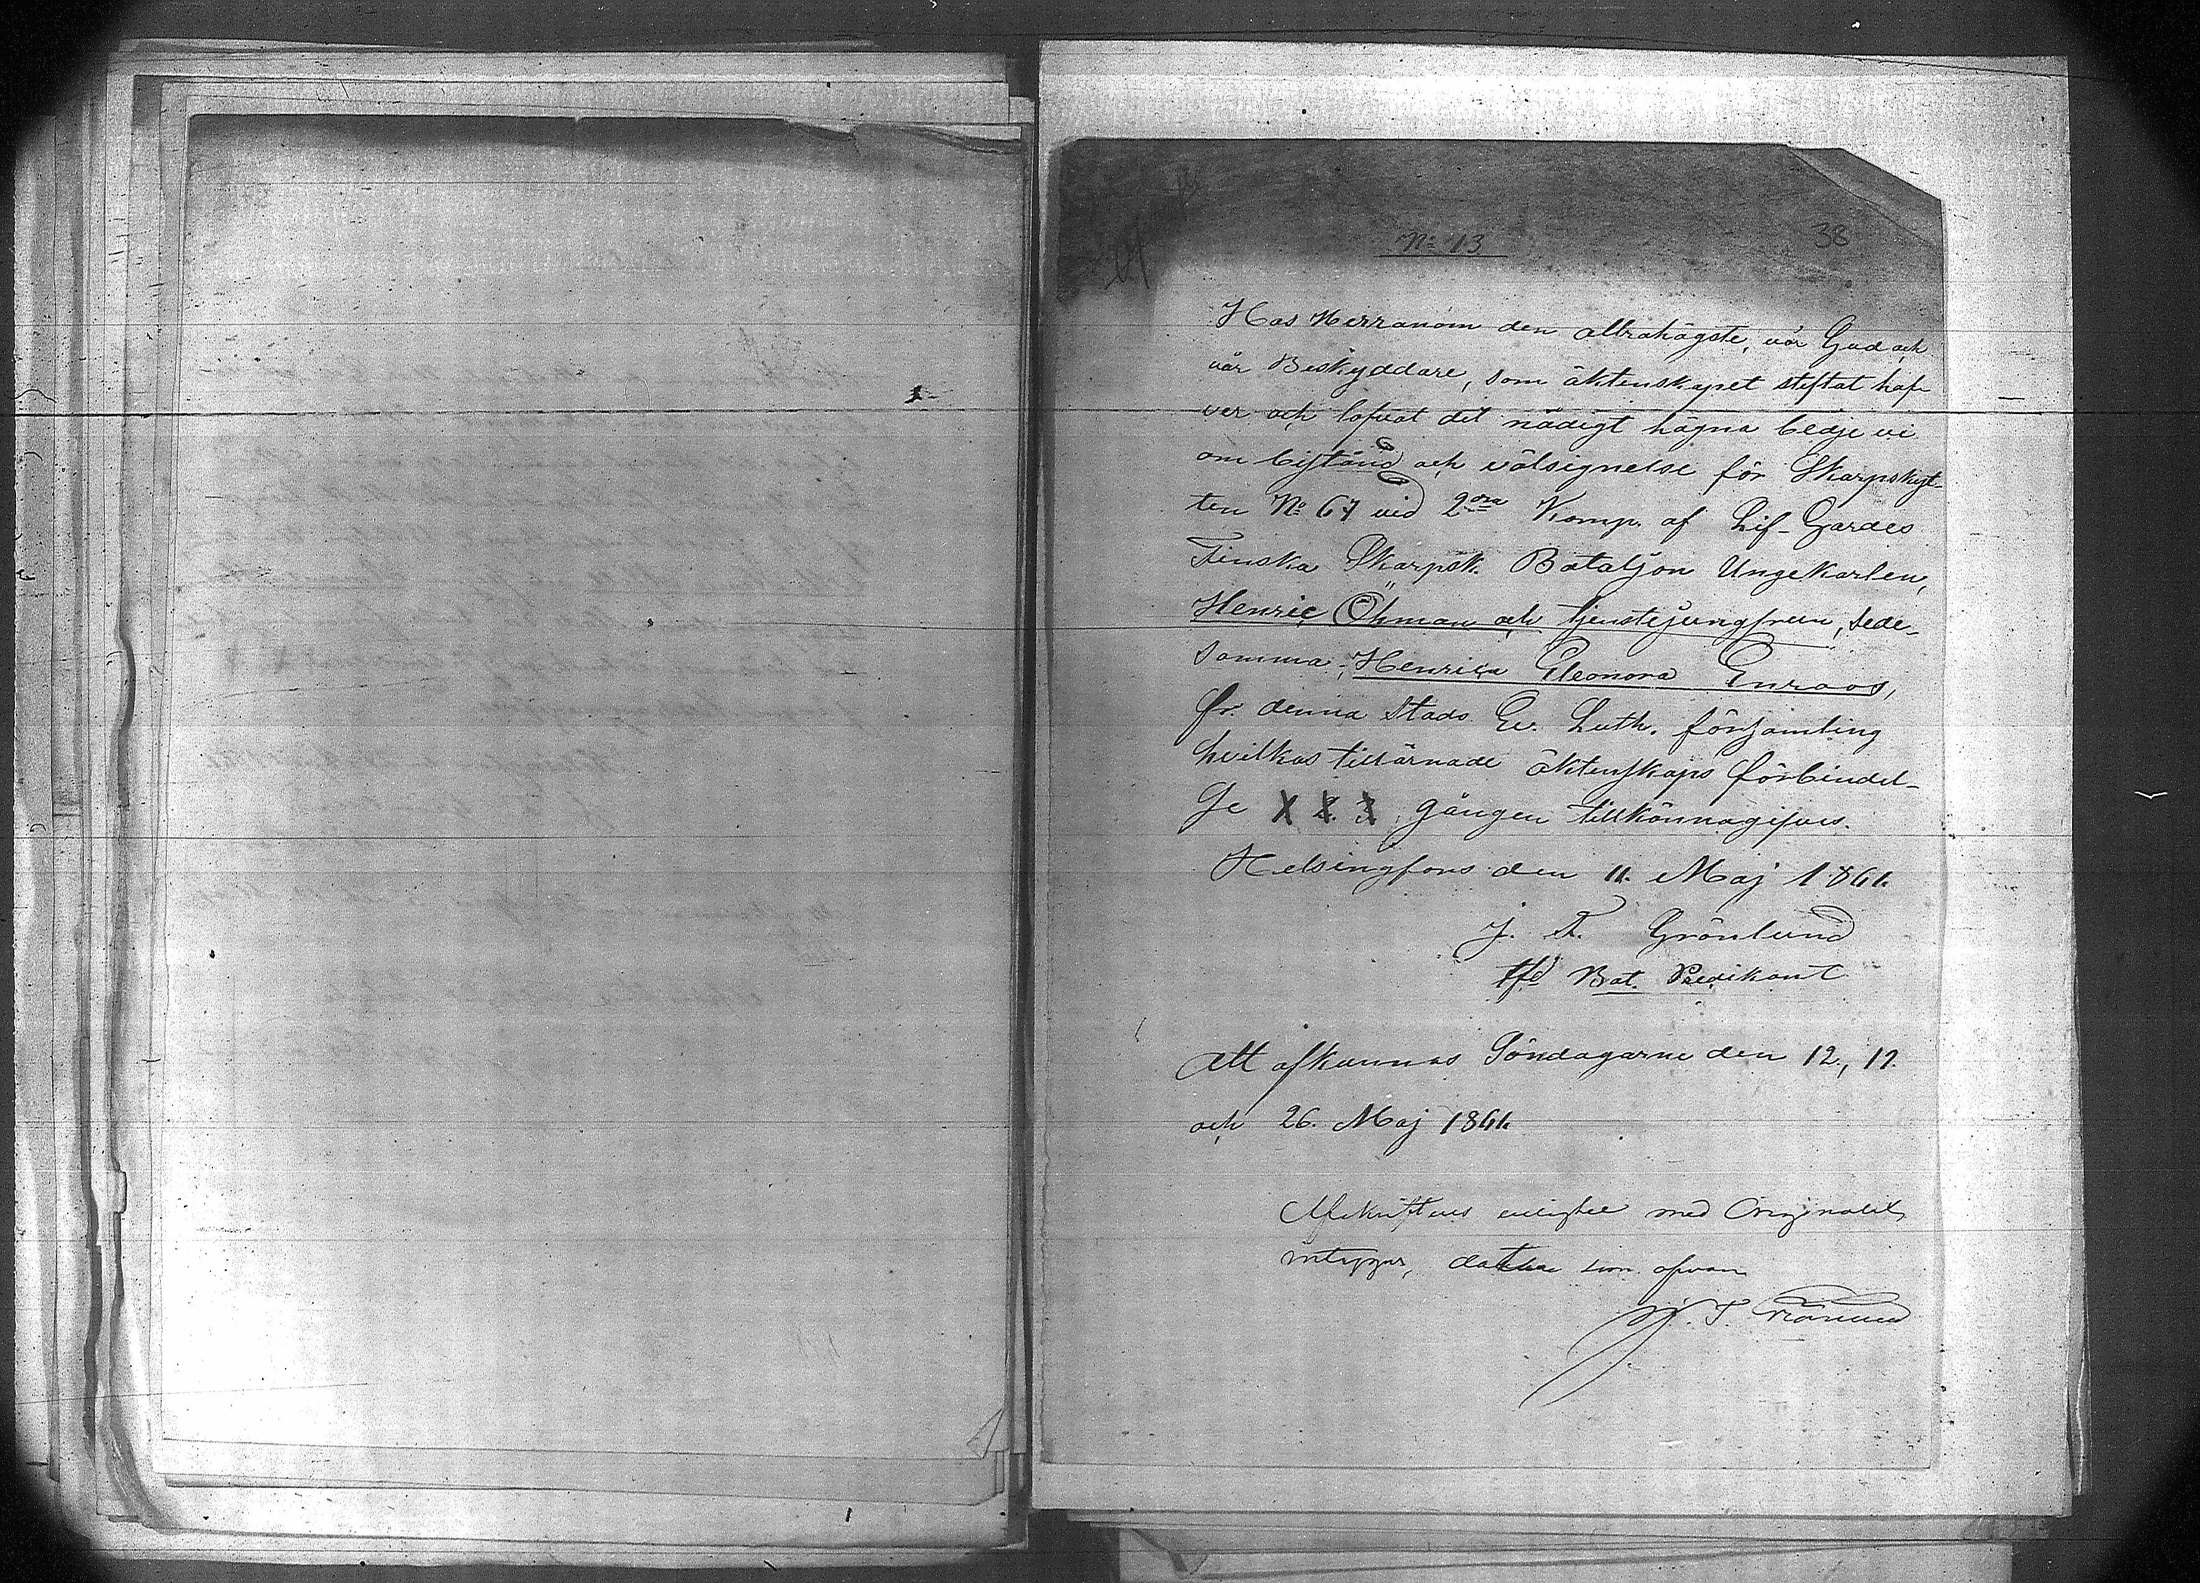 38
No 13
Hos Herranom den allrahögste, vår Gud och
vår Beskyddare, som äktenskapet stiftat haf-
ver och lofvat det nådigt hägna bedje vi
om bistånd och välsignelse för Skarpskyt-
ten No 67 vid 2dra Komp. af Lif-Gardes
Finska Skarpsk. Bataljon Ungekarlen,
Henric Öhman och tjenstejungfrun, sede-
samma, Henrica Eleonora Enroos,
fr. denna Stads Ev. Luth. församling
hvilkas tillärnade äktenskaps förbindel-
se 1 2. 3. gången tillkännagifves.
Helsingfors den 11. Maj 1861.
J. F. Grönlund
tfd Bat. Predikant
Att afkunnas Söndagarne den 12., 19.
och 26. Maj 1861.
Afskriftens enlighet med Originalet,
intygar, datum som ofvan
J. F. Grönlund